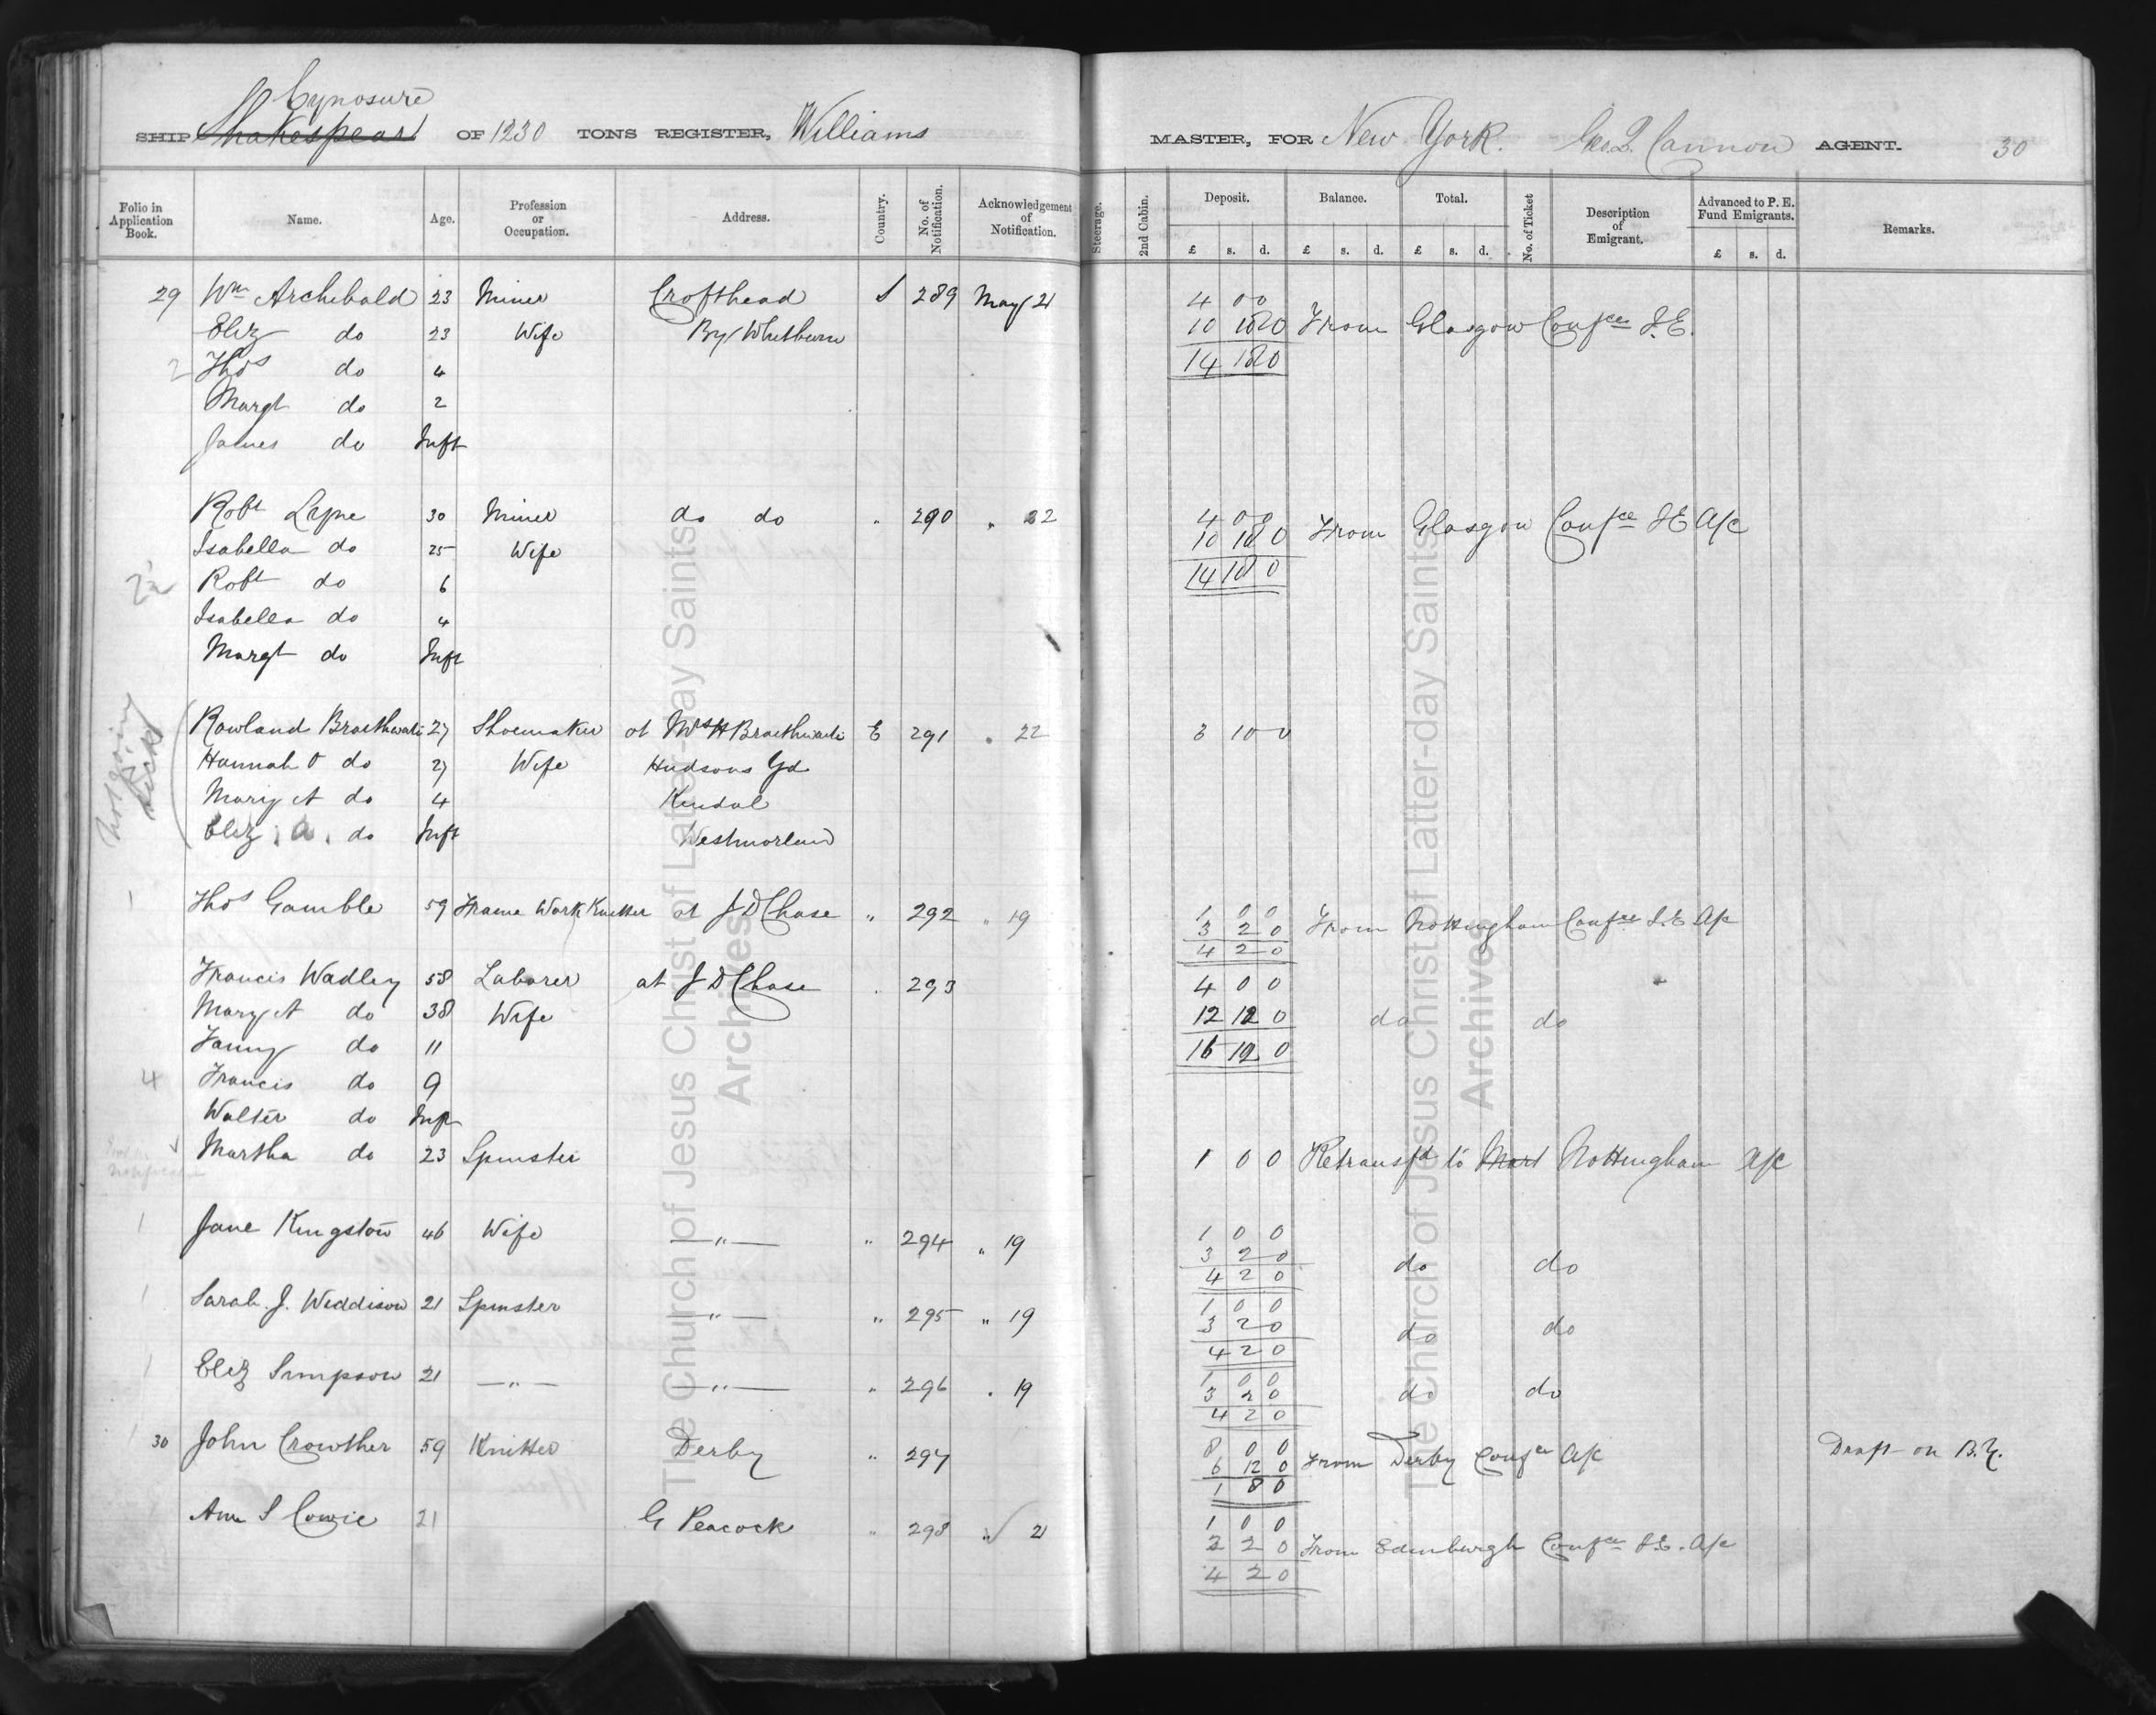 Cynosure
SHIP Shakespear OF 1230 TONS REGISTER, Williams MASTER, FOR New York. Geo. Q. Cannon AGENT. 30
Folio in Application Book. Name. Age. Profession or Occupation. Address. Country. No. of Notification. Acknowledgement of Notification. Steerage. 2nd Cabin. Deposit. Balance. Total. No. of Ticket Description of Emigrant. Advanced to P. E. Fund Emigrants. Remarks.
£ s. d. £ s. d. £ s. d. £ s. d.
29 Wm Archibald 23 Miner Crofthead S 289 May 21 4 0 0
Eliz do 23 Wife By Whitburn 10 18 0 From Glasgow Confce I.E.
2 Thos do 4 14 18 0
Margt do 2
James do Inft
Robt Layne 30 Miner do do " 290 " 22 4 0 0
Isabella do 25 Wife 10 18 0 From Glasgow Confce I E A/c
2½ Robt do 6 14 18 0
Isabella do 4
Margt do Inft
not going sick
Rowland Braithwaite 27 Shoemaker at Mrs H Braithwaite E 291 " 22 3 10 0
Hannah O do 27 Wife Hudsons Yd
Mary A do 4 Kendal
Eliz. a. do Inft Westmorland
1 Thos Gamble 59 Frame Work Knitter at J D Chase " 292 " 19 1 0 0
3 2 0 From Nottingham Confce I.E A/c
4 2 0
Francis Wadley 58 Laborer at J D Chase " 293 4 0 0
Mary A do 38 Wife 12 12 0 do do
Fanny do 11 16 12 0
4 Francis do 9
Walter do Inft
Martha do 23 Spinster 1 0 0 Retransfd to Mart Nottingham A/c
1 Jane Kingston 46 Wife — " — " 294 " 19 1 0 0
3 2 0 do do
4 2 0
1 Sarah J. Widdison 21 Spinster — " — " 295 " 19 1 0 0
3 2 0 do do
4 2 0
1 Eliz Simpson 21 — " — — " — " 296 " 19 1 0 0
3 2 0 do do
4 2 0
30 John Crowther 59 Knitter Derby " 297 8 0 0 Draft on B.Y.
6 12 0 From Derby Confce A/c
1 8 0
Ann S Cowie 21 G Peacock " 298 " 21 1 0 0
3 2 0 From Edinburgh Confce I.E. A/c
4 2 0
The Church of Jesus Christ of Latter-day Saints
Archives
The Church of Jesus Christ of Latter-day Saints
Archives